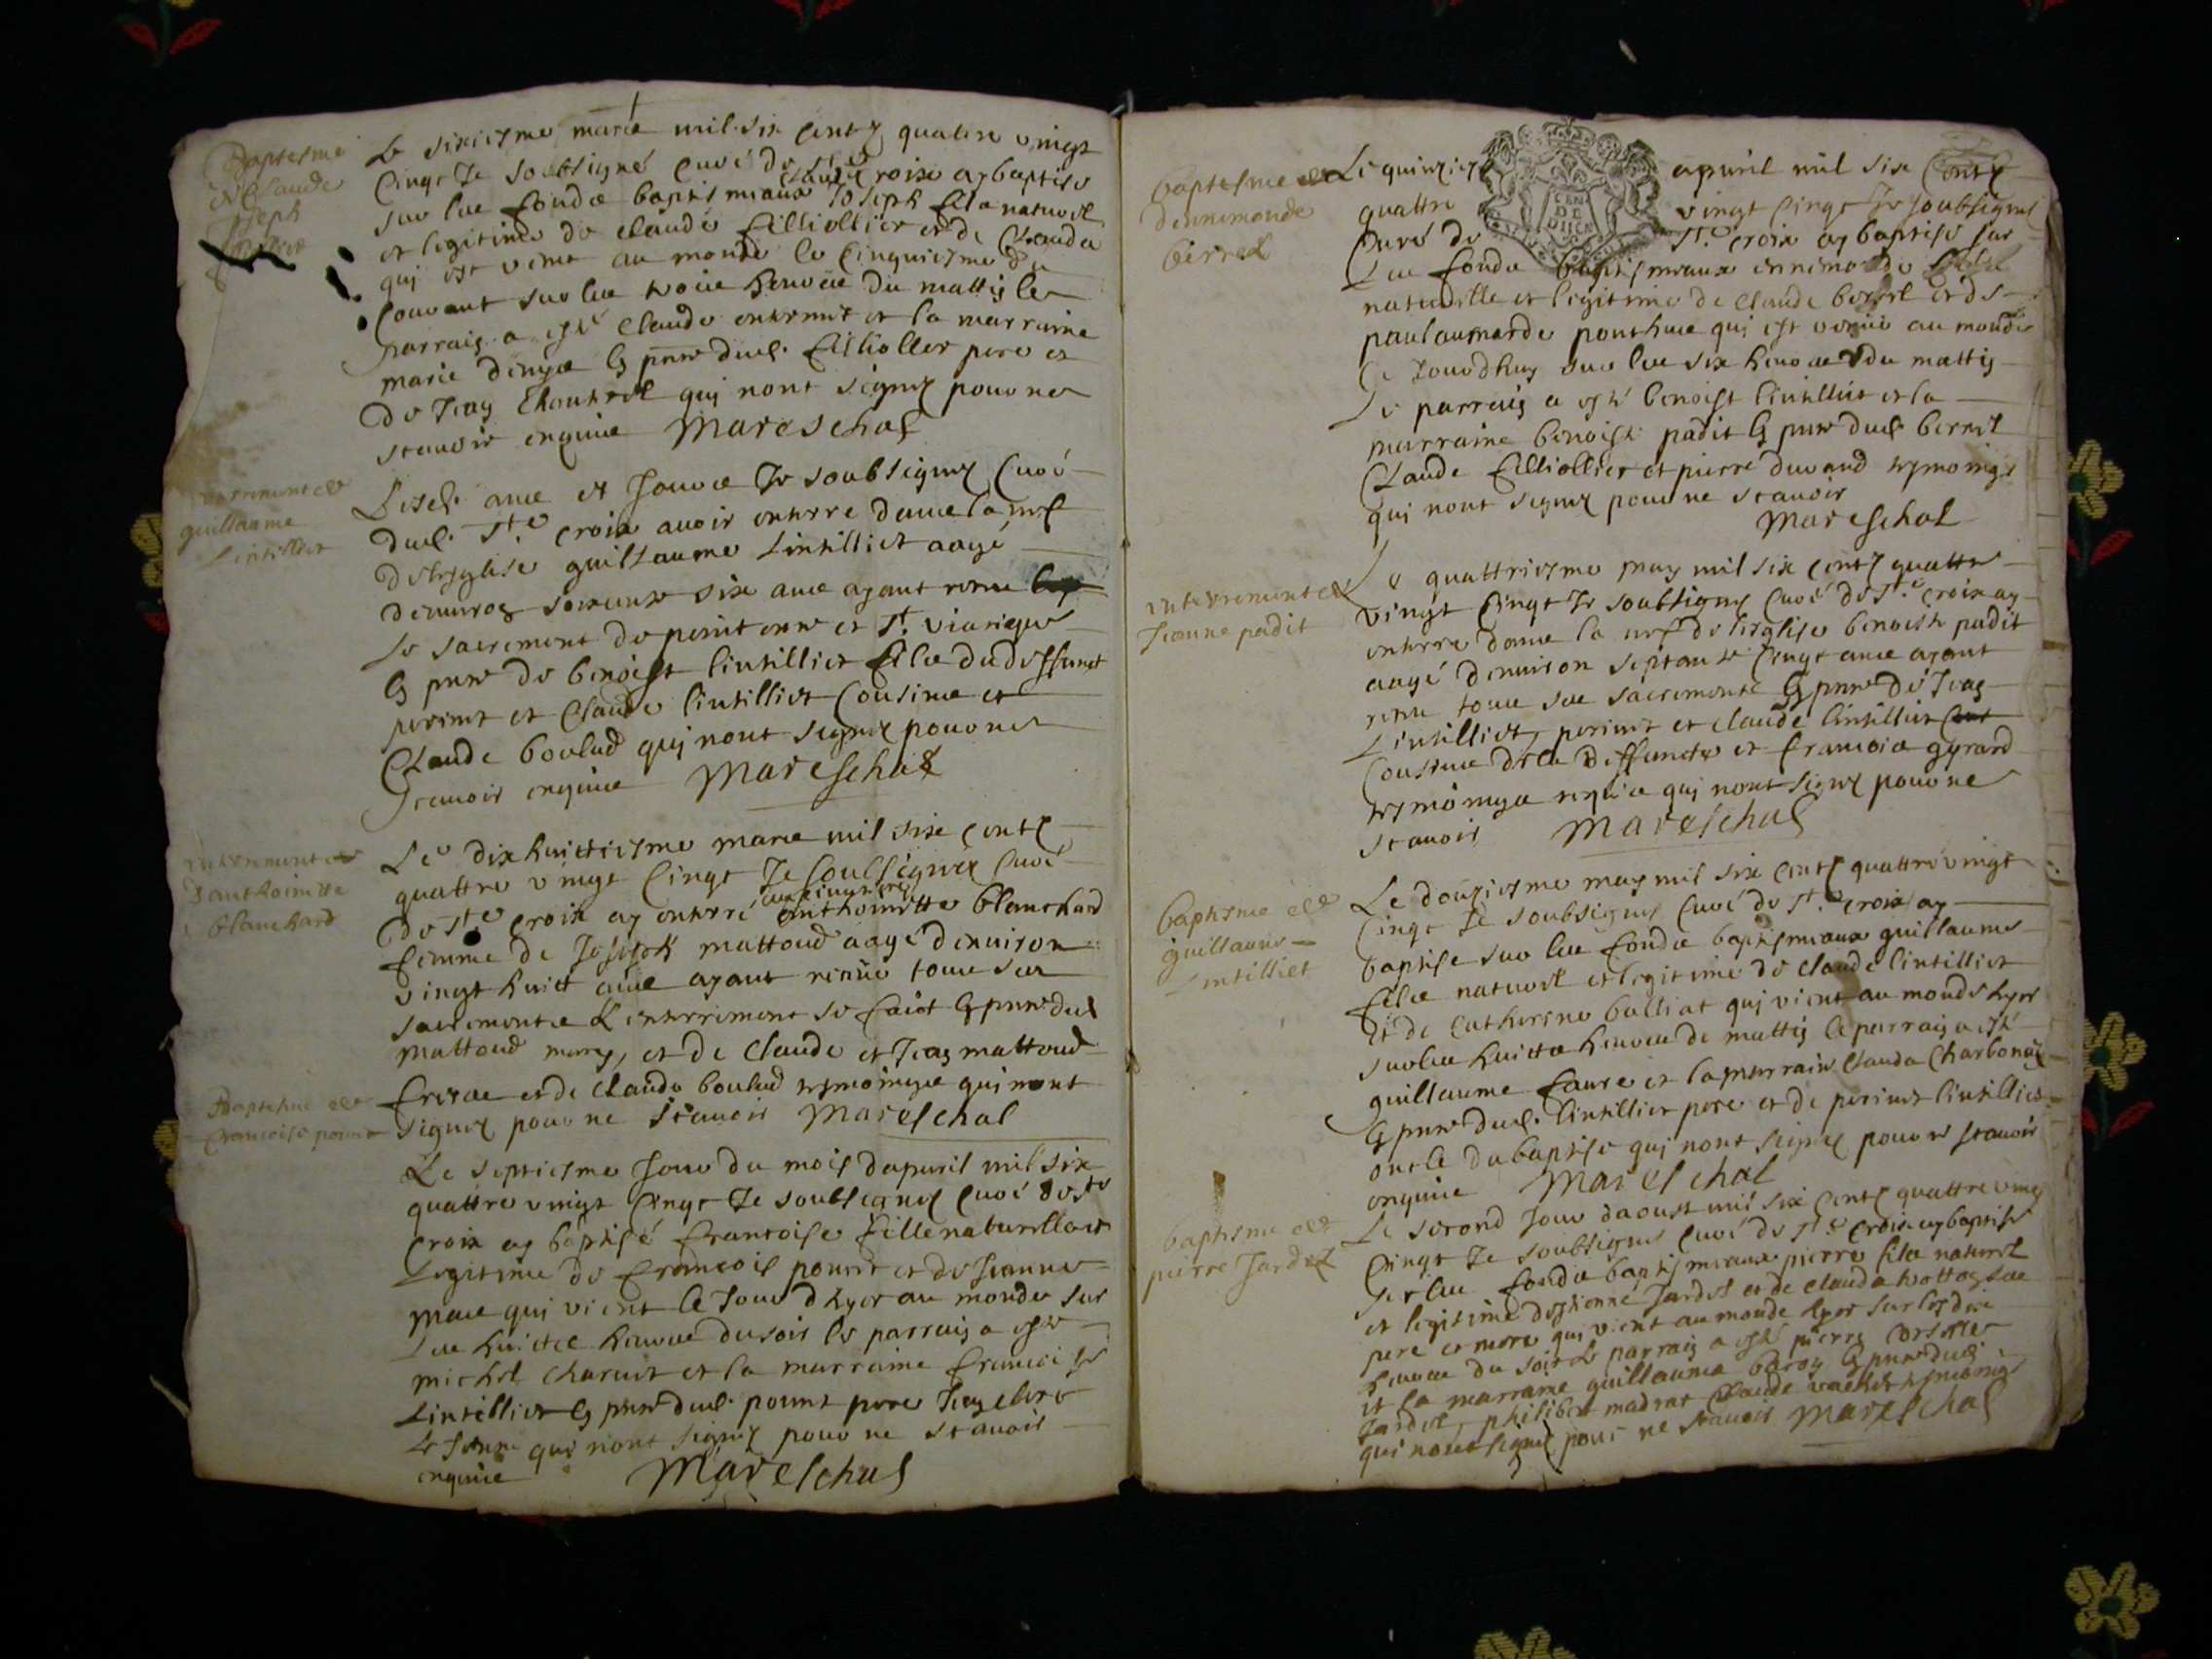 Baptesme
de Claude
Joseph
Le sixiesme mars mil six cents quatre vingt
cinqt Je soubsigné Curé de Ste Croix ay baptisé
sur les fonds baptismaux Joseph fils naturel
et legitime de Claude filliollier et de Clauda
qui est venu au monde le cinquiesme du
Courant sur les trois heures du mattin le
parrain a esté Claude et la marraine
marie en pnce dud. filliollier pere et
de Jean qui nont signez pour ne
scavoir enquis Mareschal
enterrement de
guillaume
Lintillier
Lesd. ans et Jours Je soubsignez Curé
dud. Ste Croix avoir enterre dans la nef
de lesglise guillaume Lintillier aagé
denviron soixante six ans ayant receu
le sacrement de penitence et St. viatique
En pnce de benoist lintillier fils du deffunct
perinet et Claude lintillier Cousins et
Claude boulud qui nont signez pour ne
scavoir enquis Mareschal
enterrement de
d'anthoinette
blanchard
Le dixhuictiesme mars mil six cents
quattre vingt cinqt Je soubsignez Curé
de Ste Croix ay enterré au cimetiere anthoinette blanchard
femme de Joseph mattoud aagé denviron
vingt huict ans ayant receue tous ses
sacrements Lenterrement se faict En pnce dud
mattoud mary, et de Claude et Jean mattoud
freres et de Claude boulud tesmoings qui nont
signez pour ne scavoir Mareschal
Baptesme de
francoise ponnet
Le septiesme Jour du mois dapvril mil six
quattre vingt cinqt Je soubsignez Curé de Ste
Croix ay baptisé francoise fille naturelle et
Legitime de francois ponnet et de Jeanne
mas qui vient le Jour dhyer au monde sur
les huictes heures du soir le parrain a esté
michel charvet et la marraine francoise
Lintillier En pnce dud. ponnet pere Jean clerc
le Jeune qui nont signez pour ne scavoir
enquis Mareschal
baptesme de
dennemonde
berrel
Le quinzies apvril mil six Cents
quattre vingt cinqt Je soubsignez
Curé de Ste Croix ay baptisé sur
Les fonds baptismaux ennemonde fille
naturelle et legitime de Claude berrel et de
paulaumarde ponthus qui est venue au monde
Ce Jourdhuy sur les six heures du mattin
Le parrain a esté benoist lintillier et la
marraine benoiste padit En pnce dud. berrel
Claude filliollier et pierre durand tesmoings
qui nont signez pour ne scavoir
Mareschal
enterrement de
Jeanne padit
Le quattriesme may mil six cents quattre
vingt cinqt Je soubsignez Curé de Ste Croix ay
enterre dans la nef de lesglise benoiste padit
aagé denviron septante cinqt ans ayant
receu tous ses sacrements En pnce de Jean
Lintillier, perinet et Claude lintillier
Cousins de la deffuncte et francois gyrard
tesmoings requis qui nont signez pour ne
scavoir Mareschal
baptesme de
guillaume
Lintillier
Le douziesme may mil six cents quattre vingt
cinqt Je soubsignez Curé de Ste Croix ay
baptisé sur les fonds baptismaux guillaume
fils naturel et legitime de Claude lintillier
et de Catherine balliat qui vient au monde hyer
sur les huictes heures de mattin le parrain a esté
guillaume faure et la marraine Clauda Charbonnet
En pnce dud. lintillier pere et de perinet lintillier
oncle du baptisé qui nont signez pour ne scavoir
enquis Mareschal
baptesme de
pierre Jardel
Le second Jour daoust mil six cents quattre vingt
cinqt Je soubsignez Curé de Ste Croix ay baptisé
sur les fonds baptismaux pierre fils naturel
et legitime destienne Jardel et de Clauda
pere et mere qui vient au monde hyer sur les dix
heures du soir Le parrain a esté pierre
et la marraine guillauma En pnce dud.
Jardel, philibert madrat Claude vachet tesmoings
qui nont signez pour ne scavoir Mareschal